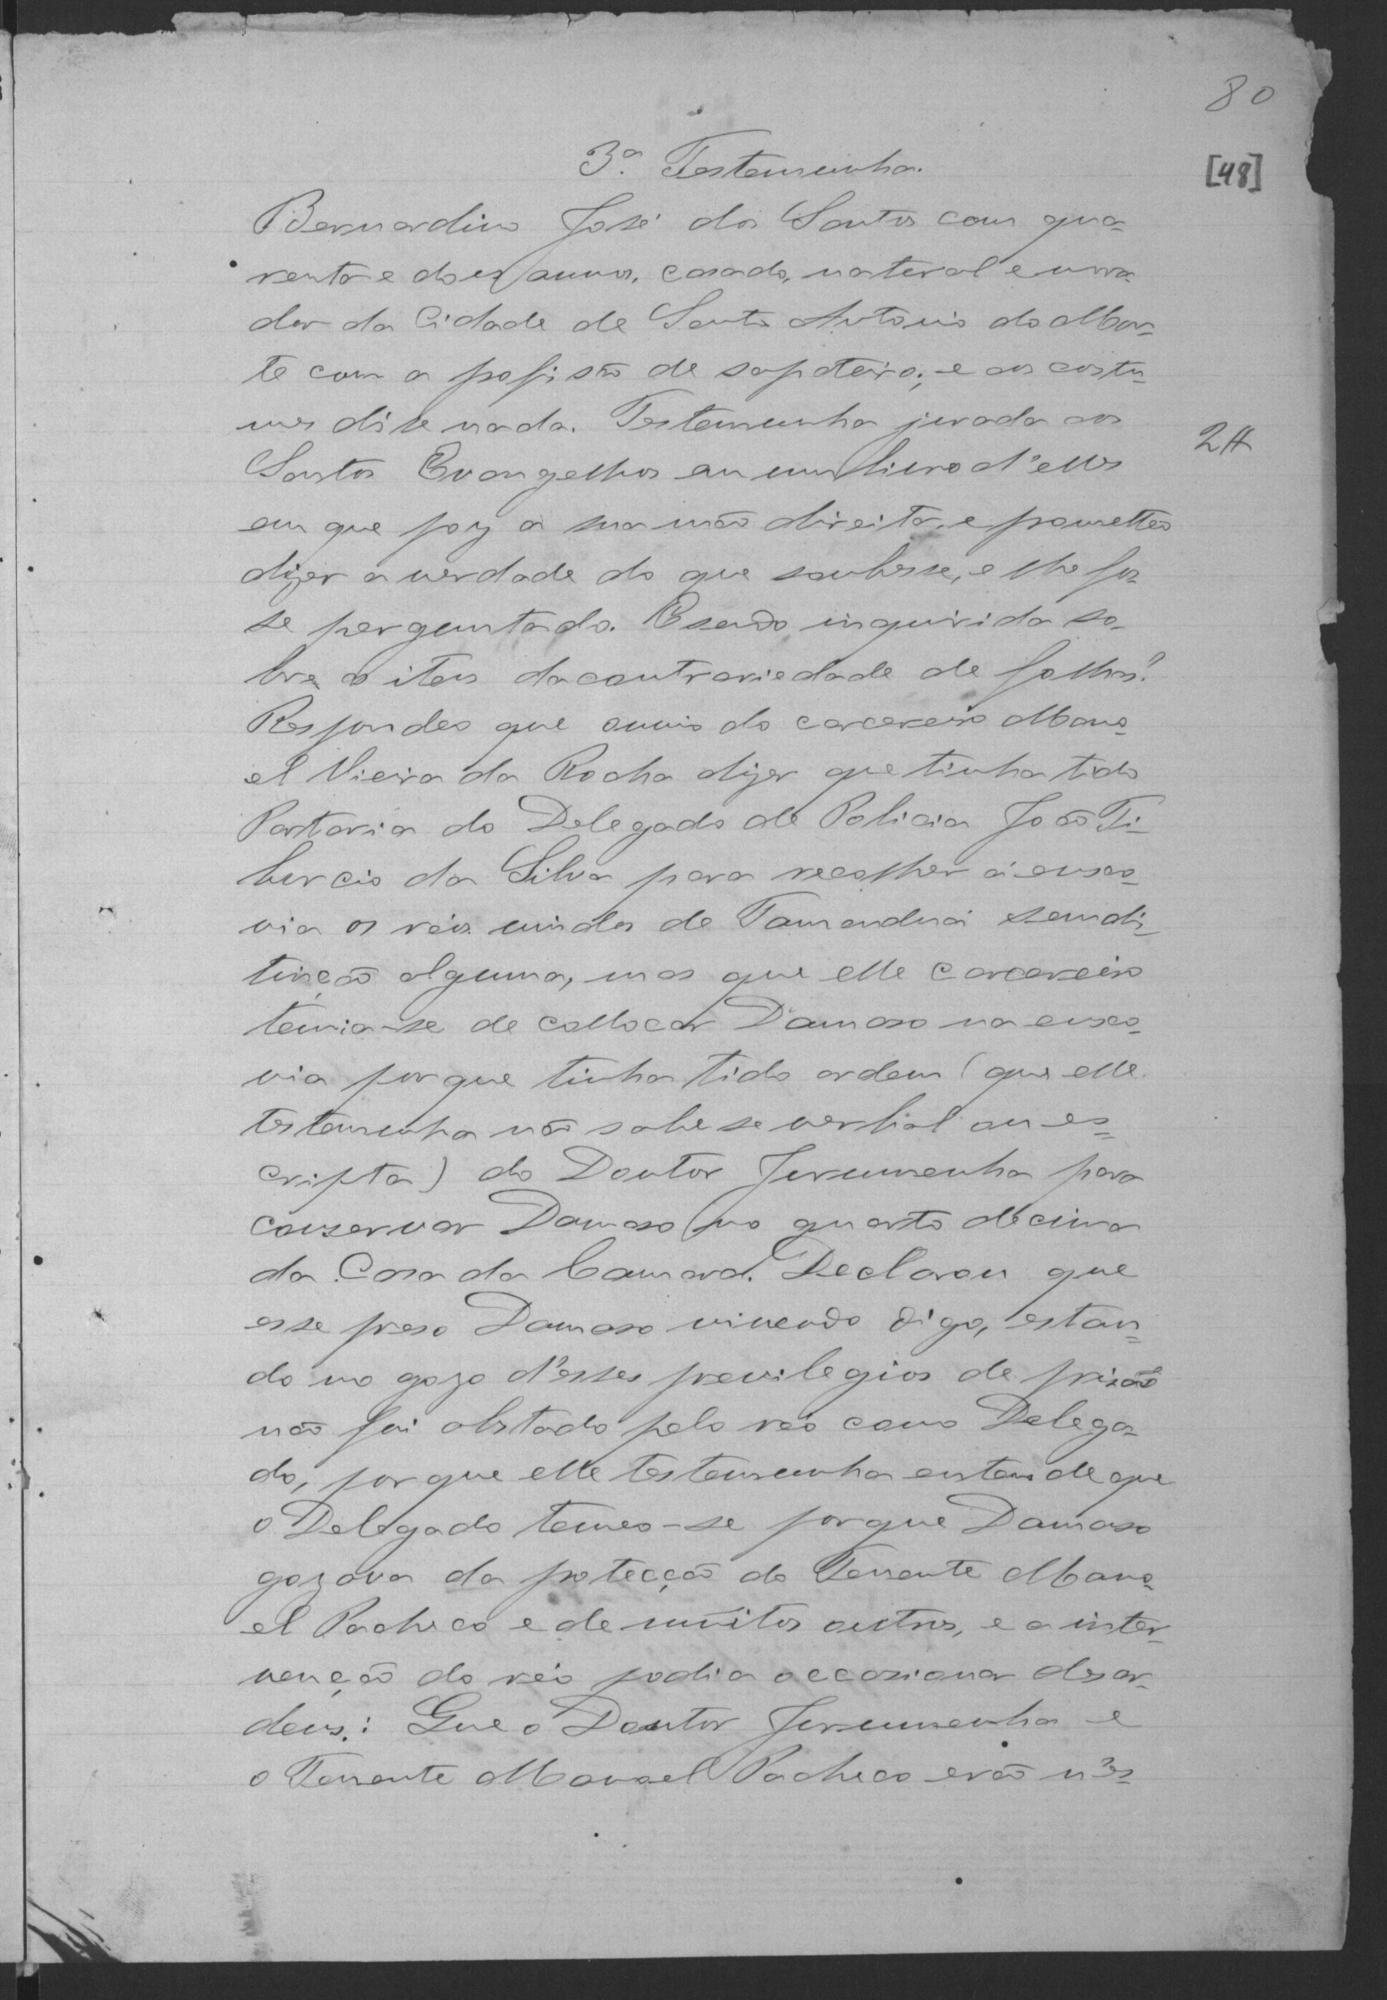 80
[48]
3ª Testemunha.
Bernardino José dos Santos com qua-
renta e dois annos, casado, natural e mora-
dor da Cidade de Santo Antonio do Mon-
te com a profisão de sapateiro; e aos costu-
mes disse nada. Testemunha jurada aos
2#
Santos Evangelhos em um livro d'elles
em que poz a sua mão direita, e prometteo
dizer a verdade do que soubesse, e lhe fos-
se perguntado. E sendo inquirida so-
bre o iten da contrariedade de folhas?
Respondeo que ouvio do carcereiro Mano-
el Vieira da Rocha dizer que tinha tido
Portaria do Delegado de Policia João Ti-
burcio da Silva para recolher á enxo-
via os réis vindos de Tamanduá sem dis-
tincção alguma, mas que elle carcereiro
temia-se de collocar Damaso na enxo-
via porque tinha tido ordem (que elle
testemunha não sabe se verbal ou es-
cripta) do Doutor Jerumenha para
conservar Damaso no quarto de cima
da Casa da Camara. Declarou que
esse preso Damaso vivendo digo, estan-
do no gozo d'esses previlegios de prisão
não foi obstado pelo réo como Delega-
do, porque elle testemunha entende que
o Delegado temeo-se porque Damaso
gozava da protecção do Tenente Mano-
el Pacheco e de muitos outros, e a inter-
venção do réo podia occazionar desor-
dens: Que o Doutor Jerumenha e
o Tenente Manoel Pacheco erão n'es-